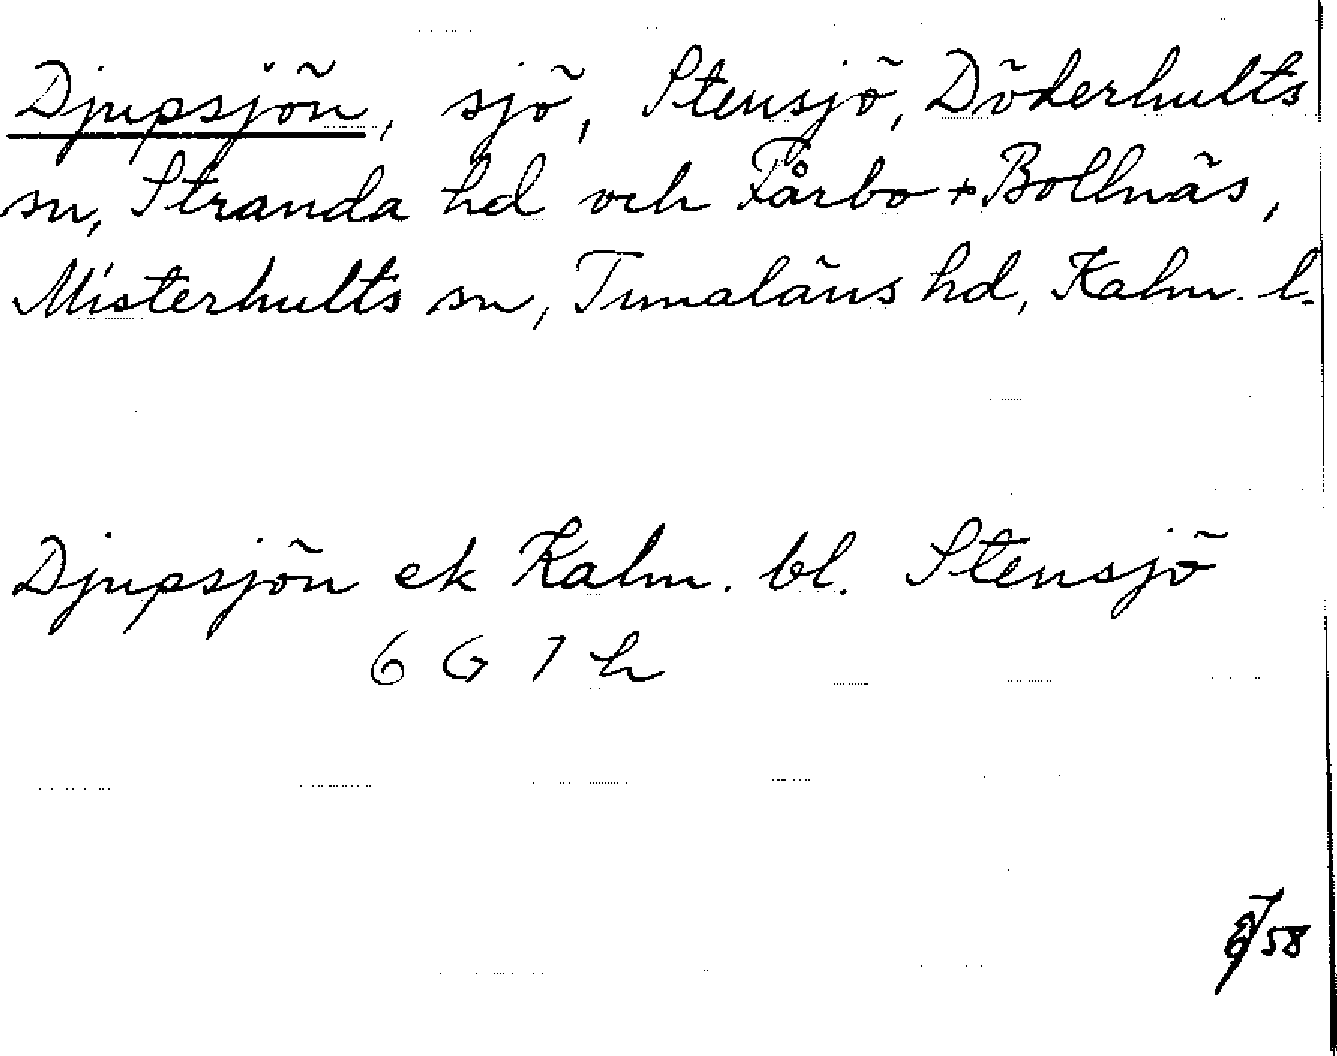 Djupsjön, sjö, Stensjö, Döderhults
sn, Stranda hd och Fårbo + Bollnäs,
Misterhults sn, Tunaläns hd, Kalm. l.
Djupsjön ek Kalm. bl. Stensjö
6 G 7 h
58